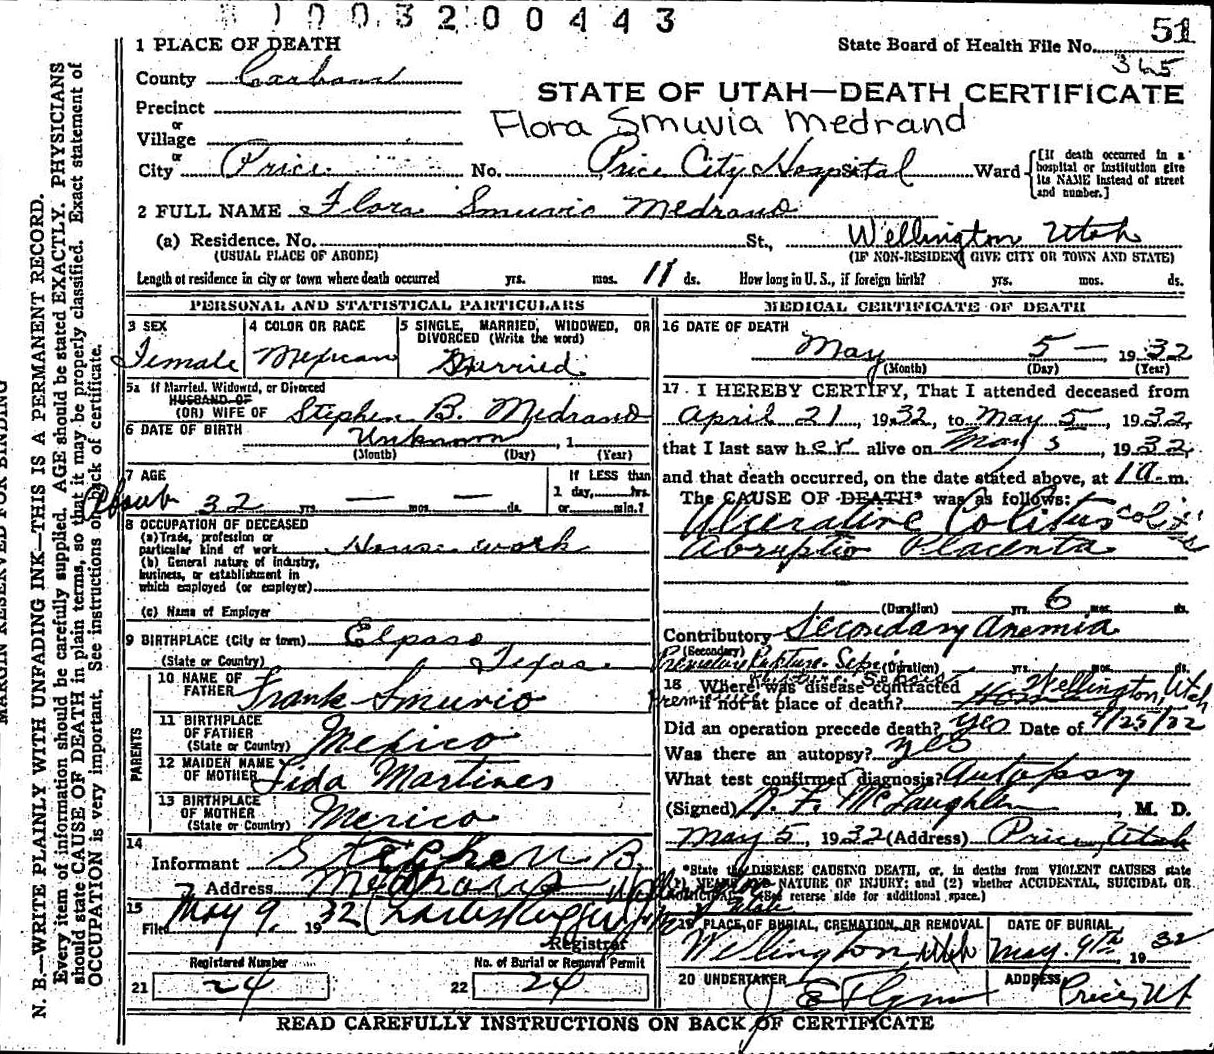 1003200443
51
State Board of Health File No.
365
1 PLACE OF DEATH
County Carbon
STATE OF UTAH—DEATH CERTIFICATE
Precinct
or
Village
Flora Smuvia Medrand
or
City Price No. Price City Hospital Ward
[If death occurred in a hospital or institution give its NAME instead of street and number.]
2 FULL NAME Flora Smuvio Medrano
(a) Residence. No. St., Wellington Utah
(USUAL PLACE OF ABODE) (IF NON-RESIDENT GIVE CITY OR TOWN AND STATE)
Length of residence in city or town where death occurred yrs. mos. 11 ds. How long in U. S., if foreign birth? yrs. mos. ds.
PERSONAL AND STATISTICAL PARTICULARS
3 SEX Female
4 COLOR OR RACE Mexican
5 SINGLE, MARRIED, WIDOWED, OR DIVORCED (Write the word) Married
5a If Married, Widowed, or Divorced
HUSBAND OF
(OR) WIFE OF Stephen B. Medrano
6 DATE OF BIRTH Unknown , 1
(Month) (Day) (Year)
7 AGE
About 32 yrs. — mos. — ds.
If LESS than 1 day, hrs. or min.?
8 OCCUPATION OF DECEASED
(a) Trade, profession or particular kind of work House work
(b) General nature of industry, business, or establishment in which employed (or employer)
(c) Name of Employer
9 BIRTHPLACE (City or town) Elpaso
(State or Country) Texas
PARENTS
10 NAME OF FATHER Frank Smuvio
11 BIRTHPLACE OF FATHER (State or Country) Mexico
12 MAIDEN NAME OF MOTHER Lida Martines
13 BIRTHPLACE OF MOTHER (State or Country) Mexico
14
Informant Stephen B.
Address Medrano
15
Filed May 9, 1932
Registrar
Registered Number
21 24
No. of Burial or Removal Permit
22 24
MEDICAL CERTIFICATE OF DEATH
16 DATE OF DEATH
May 5 — , 1932
(Month) (Day) (Year)
17 I HEREBY CERTIFY, That I attended deceased from
April 21, 1932, to May 5, 1932,
that I last saw her alive on May 5, 1932,
and that death occurred, on the date stated above, at 1 a.m.
The CAUSE OF DEATH* was as follows:
Ulcerative Colitus
Abruptio Placenta
(Duration) yrs. 6 mos. ds.
Contributory Secondary Anemia
(Secondary)
(Duration) yrs. mos. ds.
18 Where was disease contracted Wellington, Utah
if not at place of death? Home
Did an operation precede death? yes Date of 4/25/32
Was there an autopsy? yes
What test confirmed diagnosis? Autopsy
(Signed) McLaughlin, M. D.
May 5, 1932 (Address) Price, Utah
*State the DISEASE CAUSING DEATH, or, in deaths from VIOLENT CAUSES state
(1) MEANS AND NATURE OF INJURY; and (2) whether ACCIDENTAL, SUICIDAL OR
HOMICIDAL. (See reverse side for additional space.)
19 PLACE OF BURIAL, CREMATION, OR REMOVAL
Wellington, Utah
DATE OF BURIAL
May. 9th 1932
20 UNDERTAKER
J E Flynn
ADDRESS
Price, Ut
READ CAREFULLY INSTRUCTIONS ON BACK OF CERTIFICATE
MARGIN RESERVED FOR BINDING
N. B.—WRITE PLAINLY WITH UNFADING INK—THIS IS A PERMANENT RECORD.
Every item of information should be carefully supplied. AGE should be stated EXACTLY. PHYSICIANS
should state CAUSE OF DEATH in plain terms, so that it may be properly classified. Exact statement of
OCCUPATION is very important. See instructions on back of certificate.